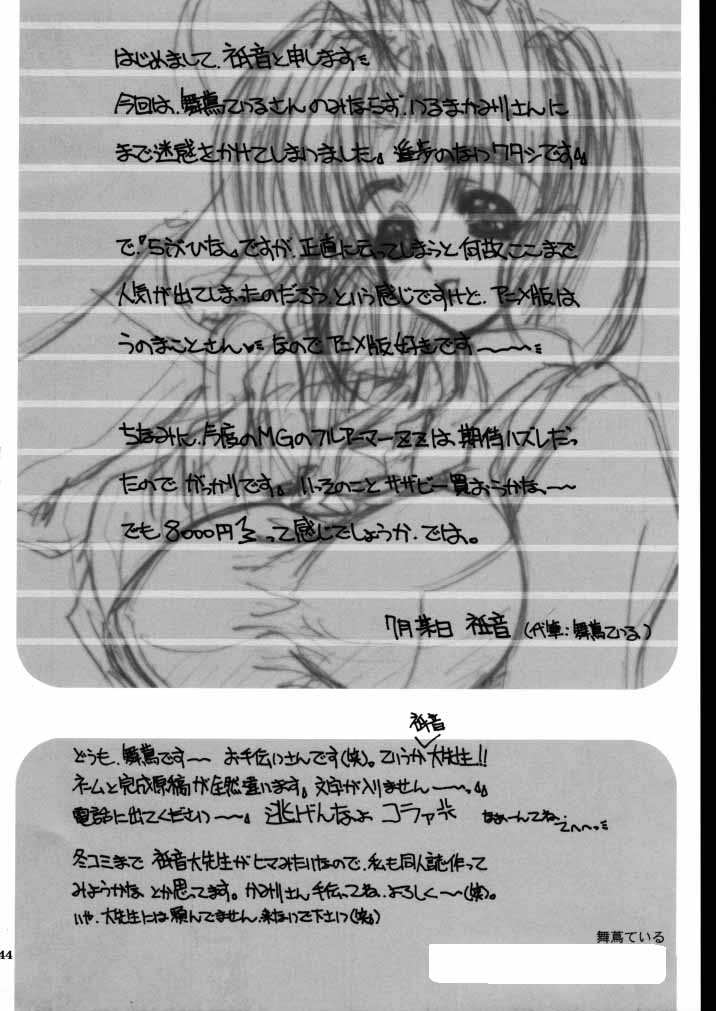 はじめまして、祇音と申します
今回は、舞蔦ているさんのみならず、いるまかみりさんに
まで迷惑をかけてしまいました。進歩のないワタシです。
で『らぶひな』ですが、正直に云ってしまうと何故、ここまで
人気が出てしまったのだろう、という感じですけど、アニメ版は
うのまことさん♥なのでアニメ版好きです〜〜〜
ちなみに、今度のMGのフルアーマーZZは、期待ハズレだっ
たのでがっかりです。いっそのことサザビー買おうかな、〜〜
でも8000円って感じでしょうか、では。
7月某日 祇音 (代筆:舞蔦ている)
祇音
どうも、舞蔦です〜〜 お手伝いさんです(笑)。ていうか大先生!!
ネームと完成原稿が全然違います。文字が入りません〜〜。
電話に出てください〜〜。逃げんなよ コラァ なぁーんてね、てへへっ
冬コミまで 祇音大先生がヒマみたいなので、私も同人誌作って
みようかな、とか思ってます。かみりさん手伝ってね、よろしく〜〜(笑)。
いや、大先生には頼んでません、来ないで下さいっ(笑)
舞蔦ている
44